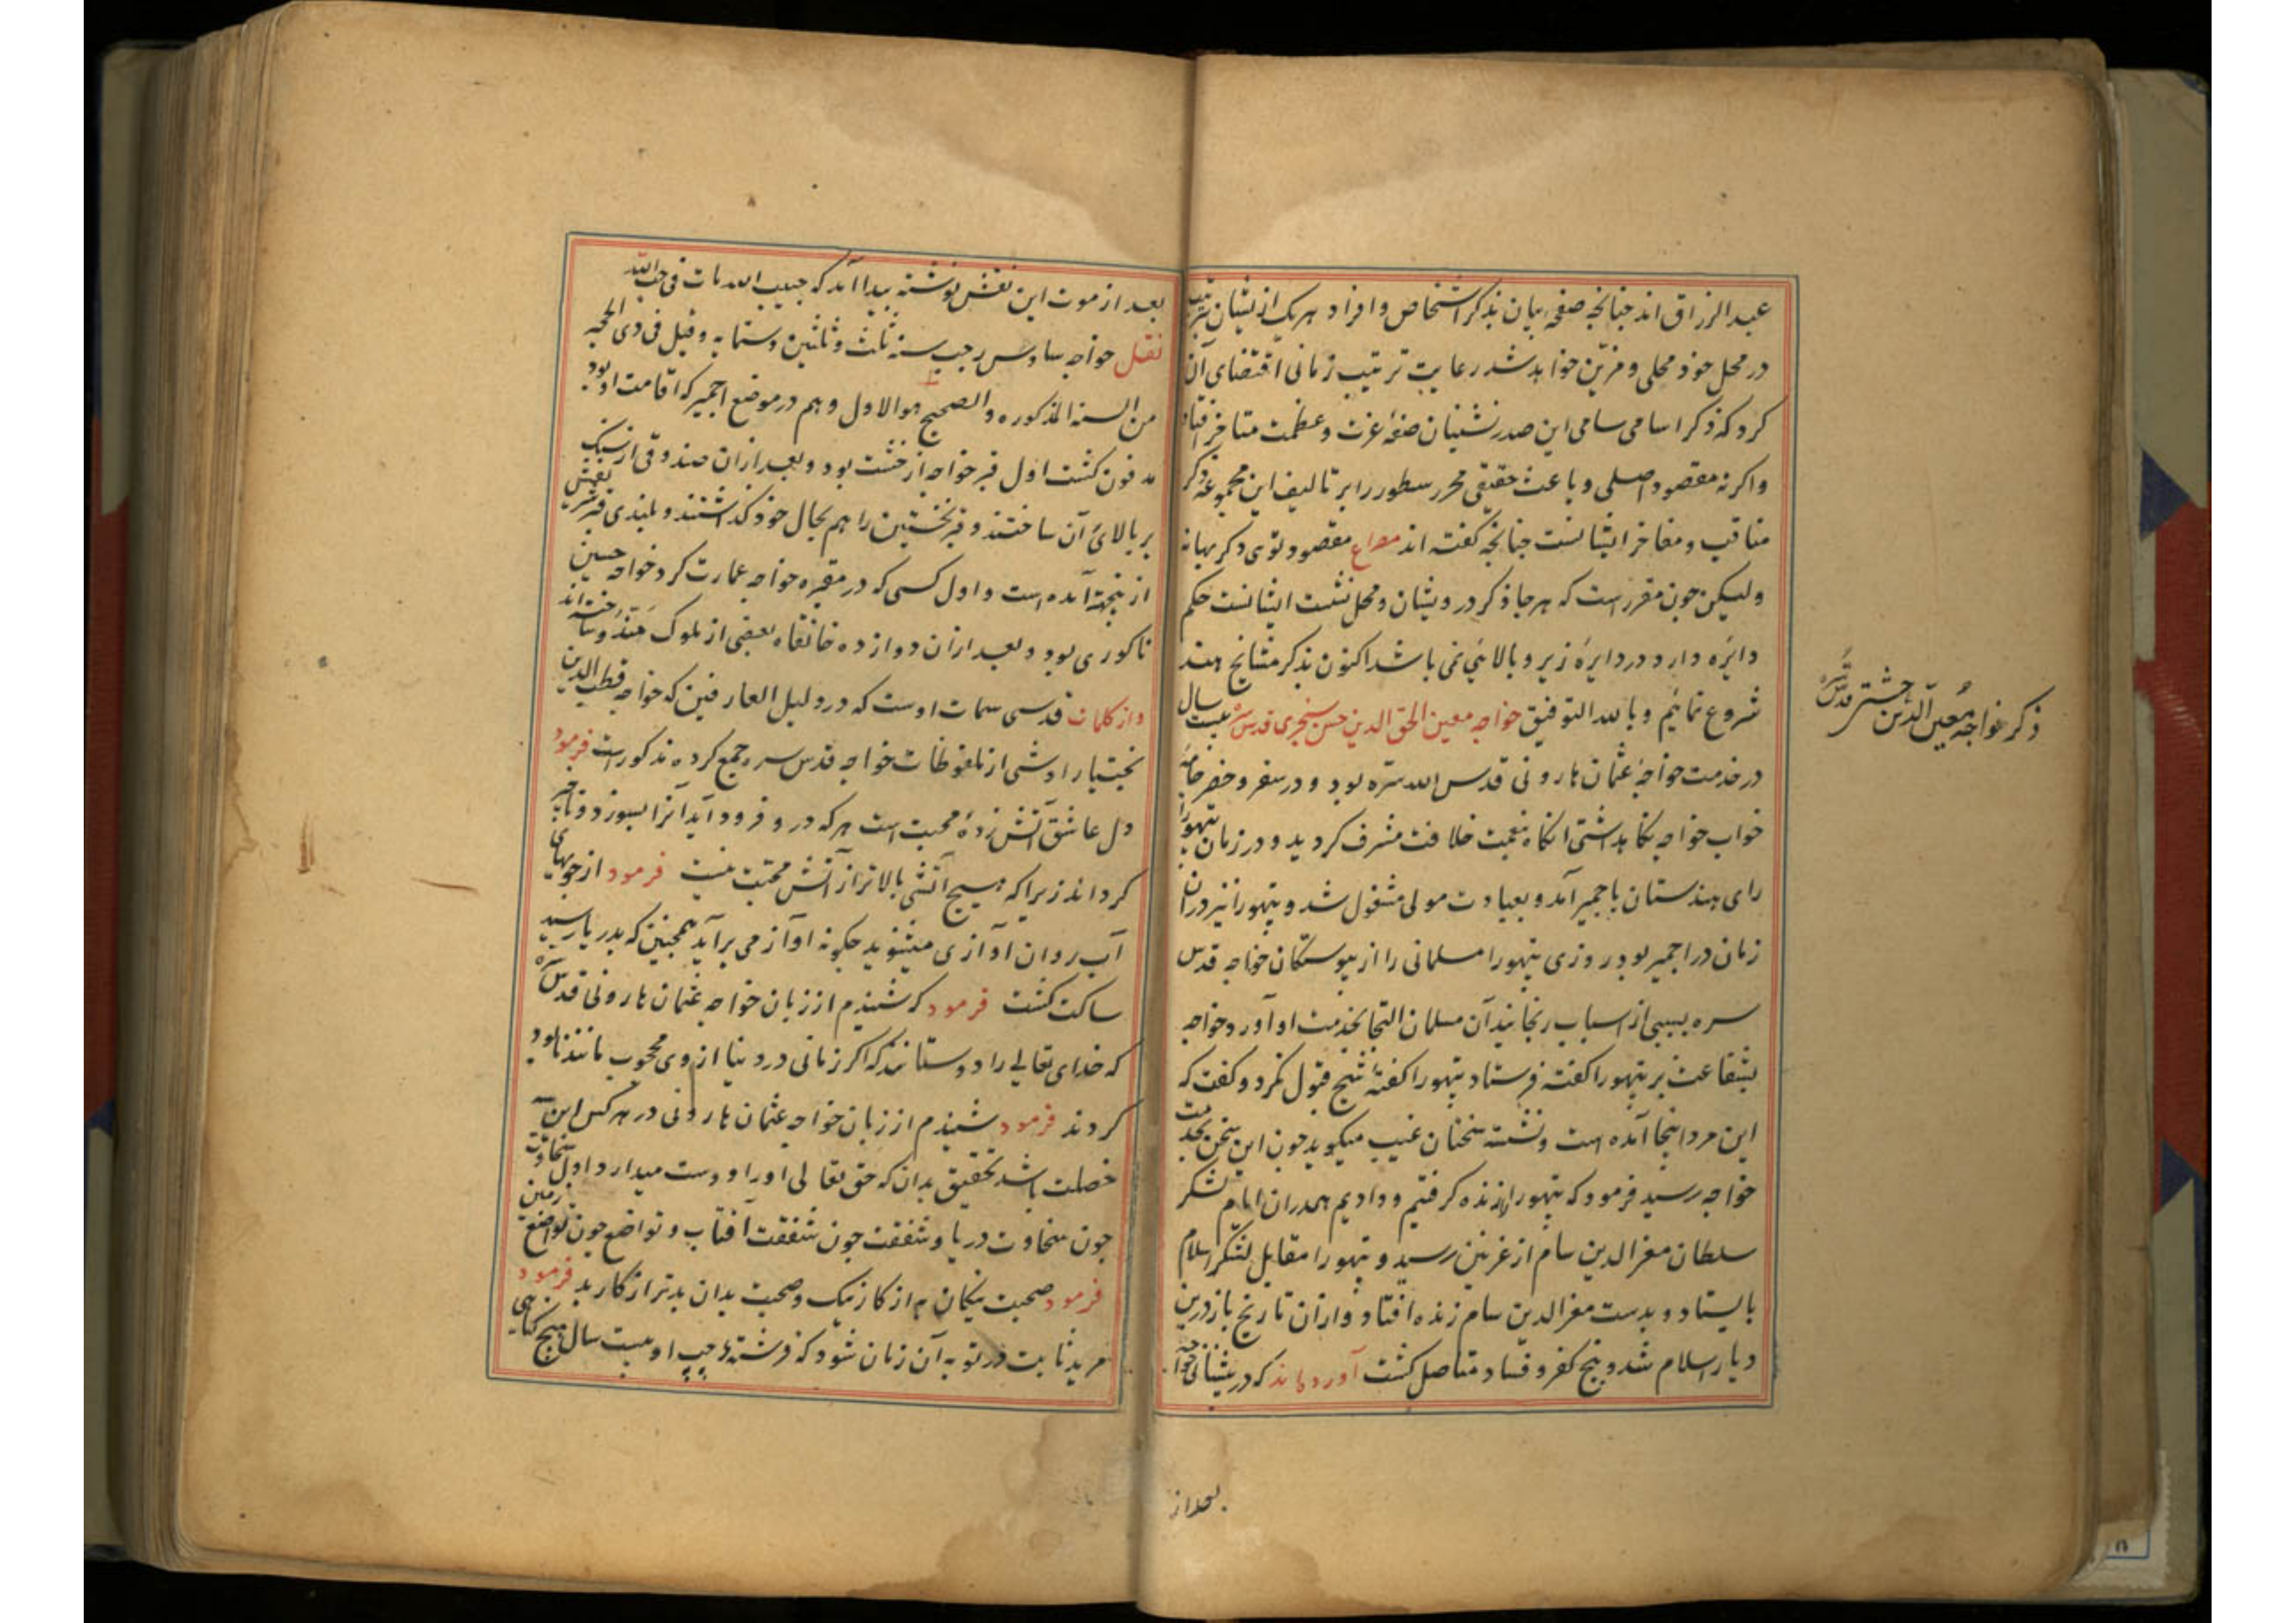 عبد الرزاق اند چنانچه صفحه بیان بذکر اشخاص و افراد هریک از یشان بترتیب
در محل خود محلی و مزین خواهد شد رعایت ترتیب زمانی اقتضای آن
کرد که ذکر اسامی سامی این صدر نشینان صفهٔ عزت و عظمت متاخر افتاد
واگرنه مقصود اصلی و باعث حقیقی محرر سطور را بر تالیف این مجموعه ذکر
مناقب و مفاخر ایشانست چنانچه گفته اند مصراع مقصود توی دگر بهانه
ولیکن چون مقرر است که هر جا ذکر درویشان و محل نشست ایشانست حکم
دایره دارد و در دایرهٔ زیر و بالایی نمی باشد اکنون بذکر مشایخ هند
شروع نمائیم و بالله التوفیق خواجه معین الحق الدین حسن سنجری قدس سره بیست سال
در خدمت خواجهٔ عثمان هارونی قدس الله سره بود و در سفر و حضر جامهٔ
خواب خواجه نگاه داشتی انگاه بنعمت خلافت مشرف گردید و در زمان پتهورا
رای هندستان باجمیر آمد و بعبادت مولی مشغول شد و پتهورا نیز دران
زمان در اجمیر بود روزی پتهورا مسلمانی را از پیوستگان خواجه قدس
سره بسببی از اسباب رنجانید آن مسلمان التجا بخدمت او آورد خواجه
بشفاعت بر پتهورا گفته فرستاد پتهورا گفتهٔ شیخ قبول نکرد و گفت که
این مرد اینجا آمده است و نشسته سخنان غیب میگوید چون این سخن بخدمت
خواجه رسید فرمود که پتهورا را زنده گرفتیم و دادیم همدران ایام لشکر
سلطان معز الدین سام از غزنین رسید و پتهورا مقابل لشکر اسلام
بایستاد و بدست معز الدین سام زنده افتاد و ازان تاریخ باز درین
دیار اسلام شد و بیخ کفر و فساد متاصل گشت آورده اند که در پیشانی خواجه
بعد از
ذکر خواجه معین الدین چشتی قدس سره
بعد از موت این نقش نوشته پیدا آمد که حبیب الله مات فی حب الله
نقل خواجه سادس رجب سنه ثلث و ثلثین و ستمایه و قیل فی ذی الحجه
من السنه المذکوره و الصحیح هو الاول و هم در موضع اجمیر که اقامت او بود
مدفون گشت اول قبر خواجه از خشت بود و بعد ازان صندوقی از سنگ
بر بالای آن ساختند و قبر نخستین را هم بحال خود گذاشتند و بلندی قبر شریفش
از ینجهته آمده است و اول کسی که در مقبره خواجه عمارت کرد خواجه حسین
ناگوری بود و بعد ازان دوازده خانقاه بعضی از ملوک مندو ساخته اند
و از کلمات قدسی سمات اوست که در دلیل العارفین که خواجه قطب الدین
بختیار اوشی از ملفوظات خواجه قدس سره جمع کرده مذکور است فرمود
دل عاشق آتش زدهٔ محبت است هر که در و فرود آید آنرا بسوزد و ناچیز
گرداند زیرا که هیچ آتشی بالاتر از آتش محبت نیست فرمود از جویهای
آب روان آوازی میشنوید چگونه آواز می برآید همچنین که بدریا رسید
ساکت گشت فرمود که شنیدم از زبان خواجه عثمان هارونی قدس سره
که خدای تعالی را دوستانند که اگر زمانی در دنیا از وی محجوب مانند نابود
گردند فرمود شنیدم از زبان خواجه عثمان هارونی در هر کس این سه
خصلت باشد تحقیق بدان که حق تعالی او را دوست میدارد اول سخاوت
چون سخاوت دریا و شفقت چون شفقت آفتاب و تواضع چون تواضع زمین
فرمود صحبت نیکان به از کار نیک و صحبت بدان بدتر از کار بد فرمود
مرید ثابت در توبه آن زمان شود که فرشتهٔ چپ او بیست سال هیچ گناهی